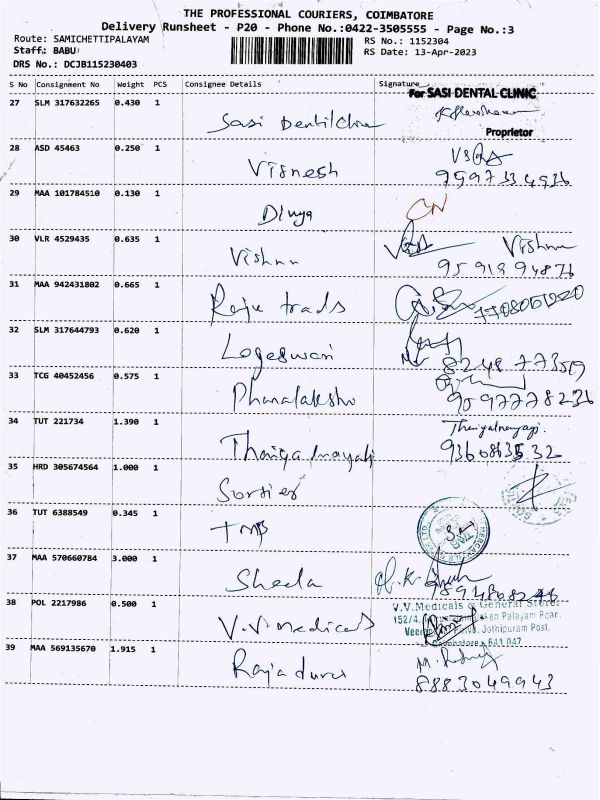 THE PROFESSIONAL COURIERS, COIMBATORE
Delivery Runsheet - P20 - Phone No.:0422-3505555 - Page No.:3
Route: SAMICHETTIPALAYAM
RS No.: 1152304
Staff: BABU
RS Date: 13-Apr-2023
DRS No.: DCJB115230403
S No Consignment No Weight PCS Consignee Details Signature
27 SLM 317632265 0.430 1 Sasi
for SASI DENTAL CLINIC
Proprietor
28 ASD 45463 0.250 1 Visnesh
29 MAA 101784510 0.130 1 Divya CN
30 VLR 4529435 0.635 1 Vishnu Vishnu
9591894876
31 MAA 942431802 0.665 1 Raju trads
32 SLM 317644793 0.620 1 Logeswari
8248 773519
33 TCG 40452456 0.575 1
9597778236
34 TUT 221734 1.390 1
9360863532
35 HRD 305674564 1.000 1
36 TUT 6388549 0.345 1 TMB
37 MAA 570660784 3.000 1 Sheela
38 POL 2217986 0.500 1 V.V.medicals
V.V.Medicals & General Store
152/4, Palayam Road,
Jothipuram Post,
Coimbatore - 641 047
39 MAA 569135670 1.915 1 Rajadurai
8883049943